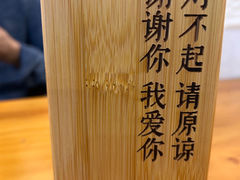 对不起 请原谅
谢谢你 我爱你